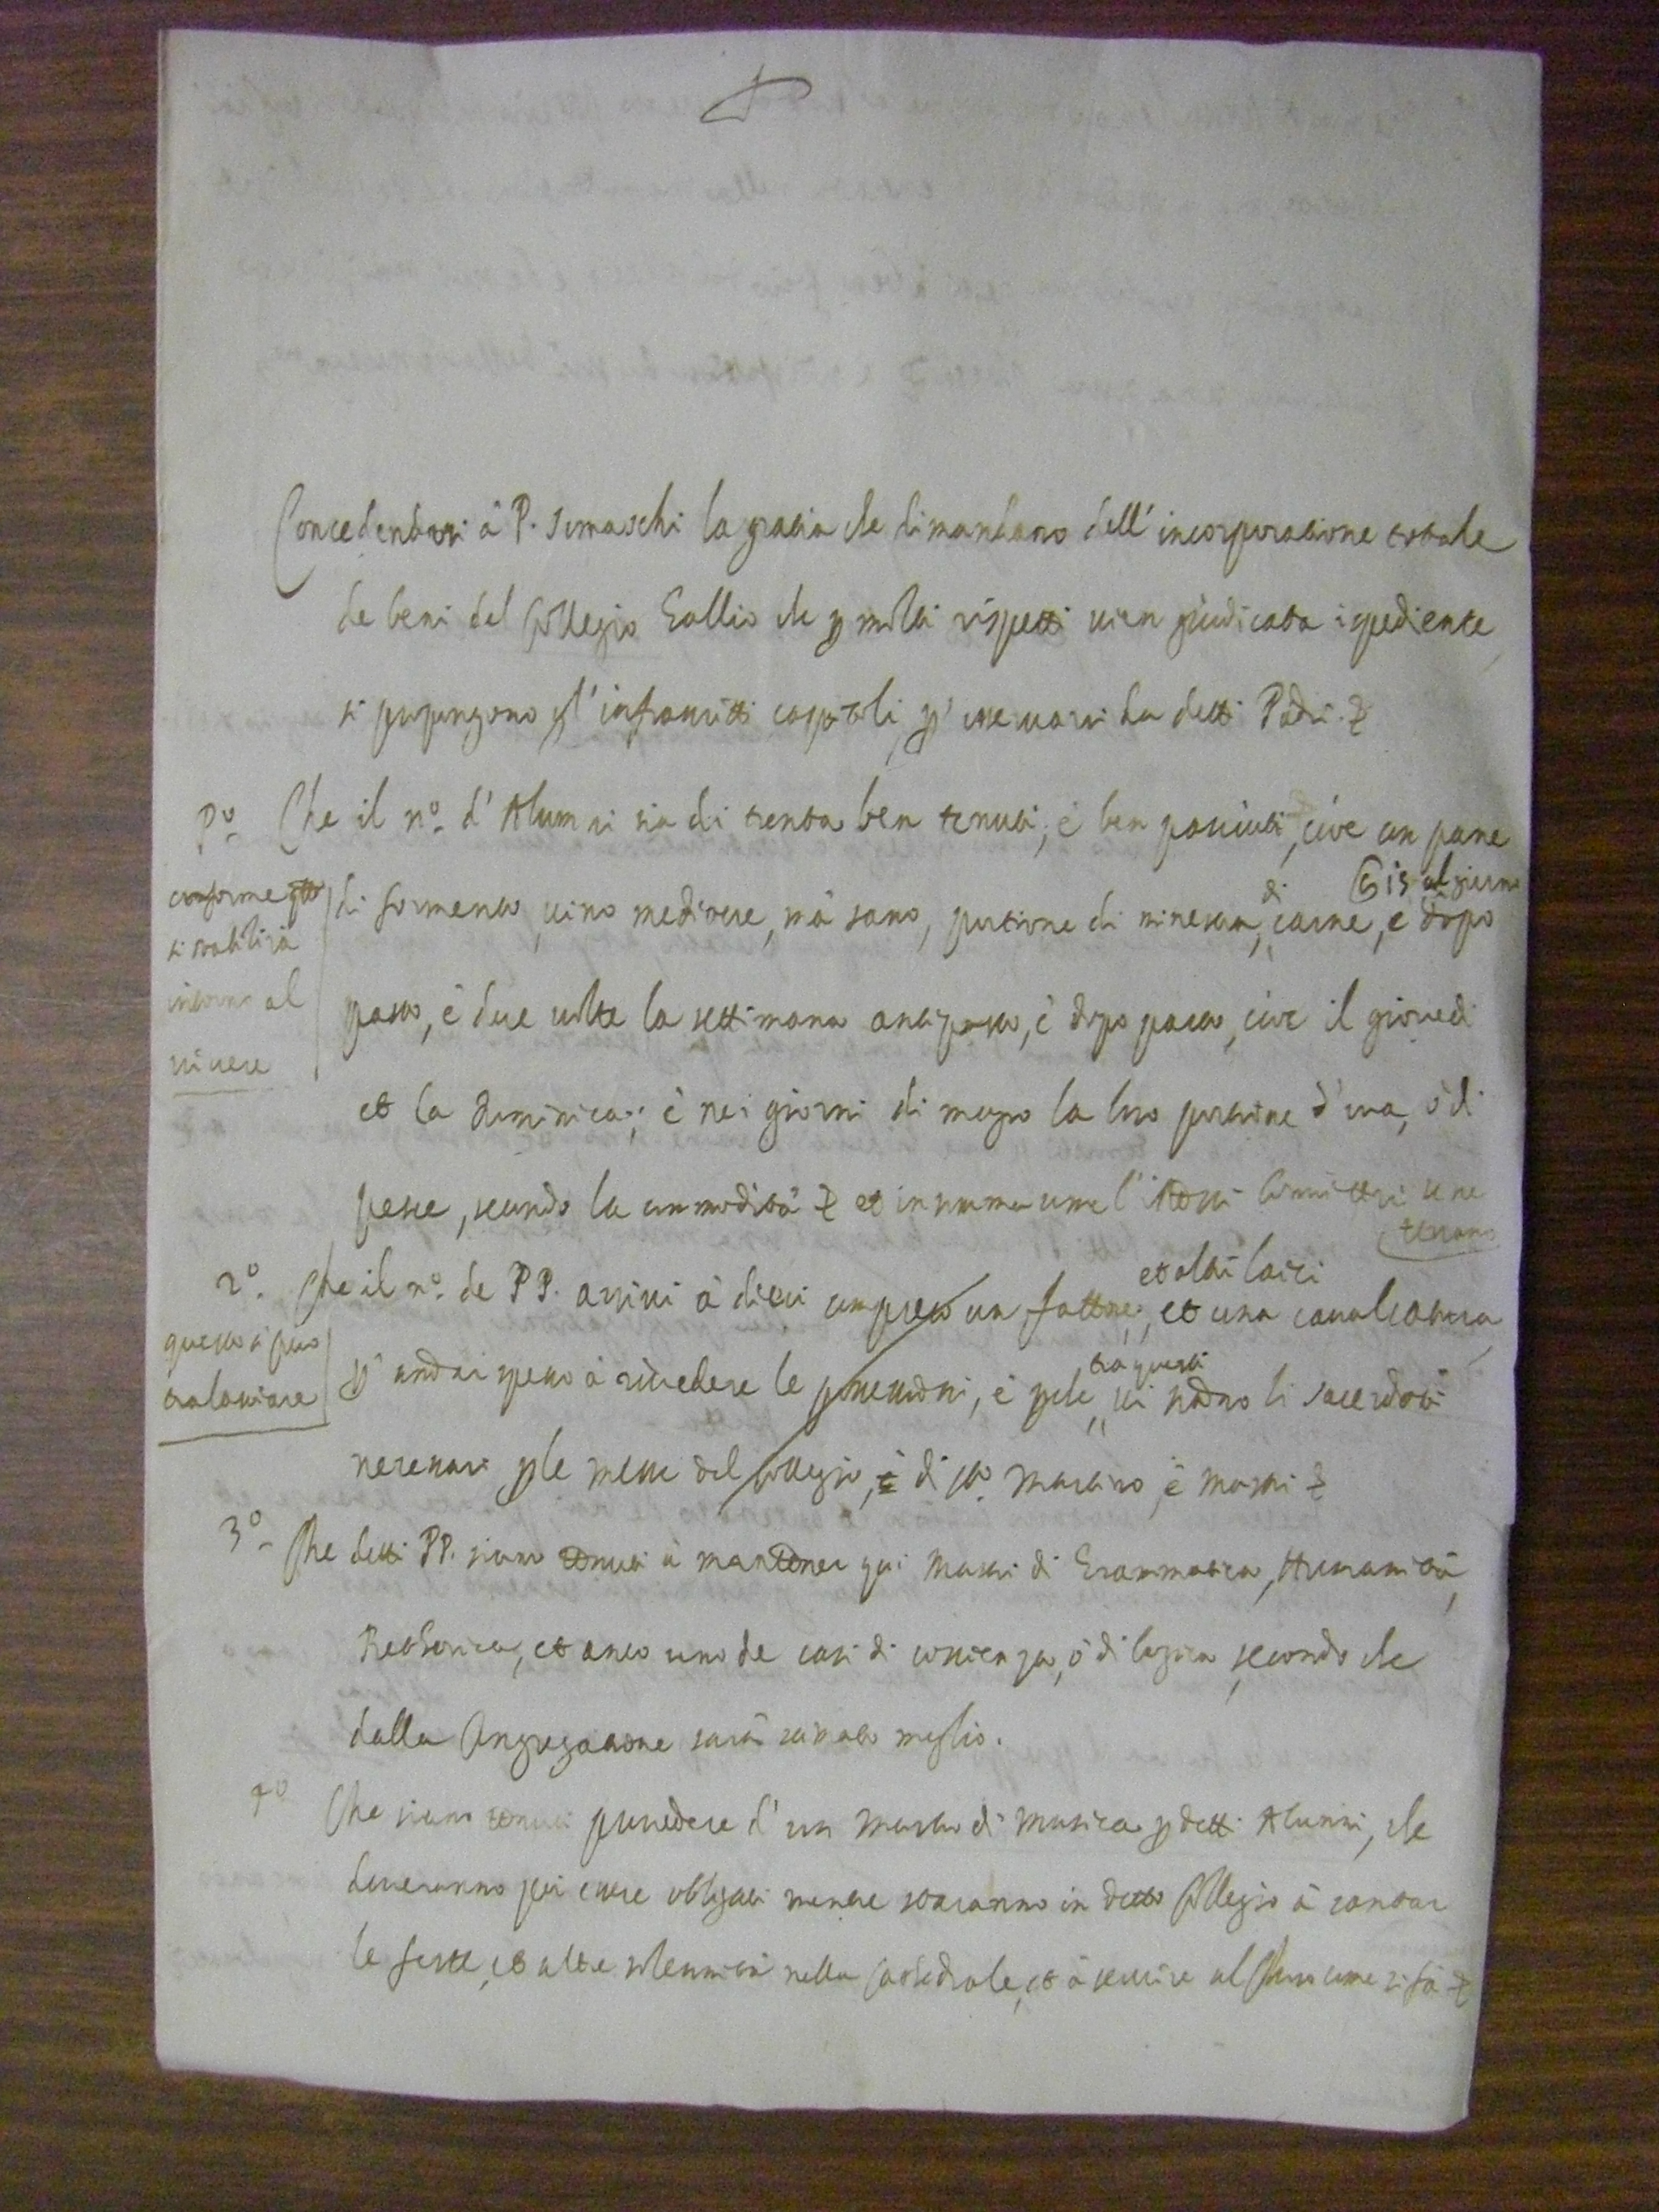 Concedendosi à P. Somaschi la gratia che dimandano dell' incorporatione totale
de beni del Collegio Gallio che p molti rispetti vien giudicata ispediente
si propongono gl' infrascritti capitoli p' osservarsi da detti Padri. &
Pº. Che il nº. d' Alunni sia di trenta ben tenuti, è ben pasciuti, cioe con pane
conforme
si stabilirà
intorno al
vivere
al giorno
di formento, vino mediocre, mà sano, portione di minestra, di carne, e dopo
pasto, è due volte la settimana antipasto, è dopo pasto, cioe il giovedi
et la dominica; è nei giorni di magro la loro portione d'ova, ò di
pesce, secondo la commodità & et in somma come l'istessi
2º. Che il nº. de PP. arrivi à dieci compreso un fattore, et altri laici et una cavalcatura
questo si può
tralasciare
p andar spesso à rivedere le possessioni, è che tra questi vi siano li sacerdoti
necessari p le messe del Collegio, è di sto. Martino, è Mastri &
3º. Che detti PP. siano tenuti à mantener qui Mastri di Grammatica, Humanità,
Rethorica, et anco uno de casi di conscienza, ò di logica, secondo che
dalla Congregatione sarà stimato meglio.
4º Che siano tenuti provedere d' un Mastro di Musica p detti Alunni, che
doveranno poi essere obligati mentre staranno in detto Collegio à cantar
le feste, et altre solennità nella Cathedrale, et à servire al Choro come si fà &